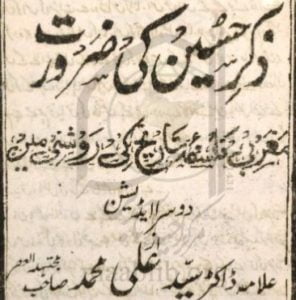 ذکرِ حسین کی ضرورت
مغربی فلسفۂ تاریخ کی روشنی میں
دوسرا ایڈیشن
از
علامہ ڈاکٹر سید علی محمد صاحب مجتہد العصر